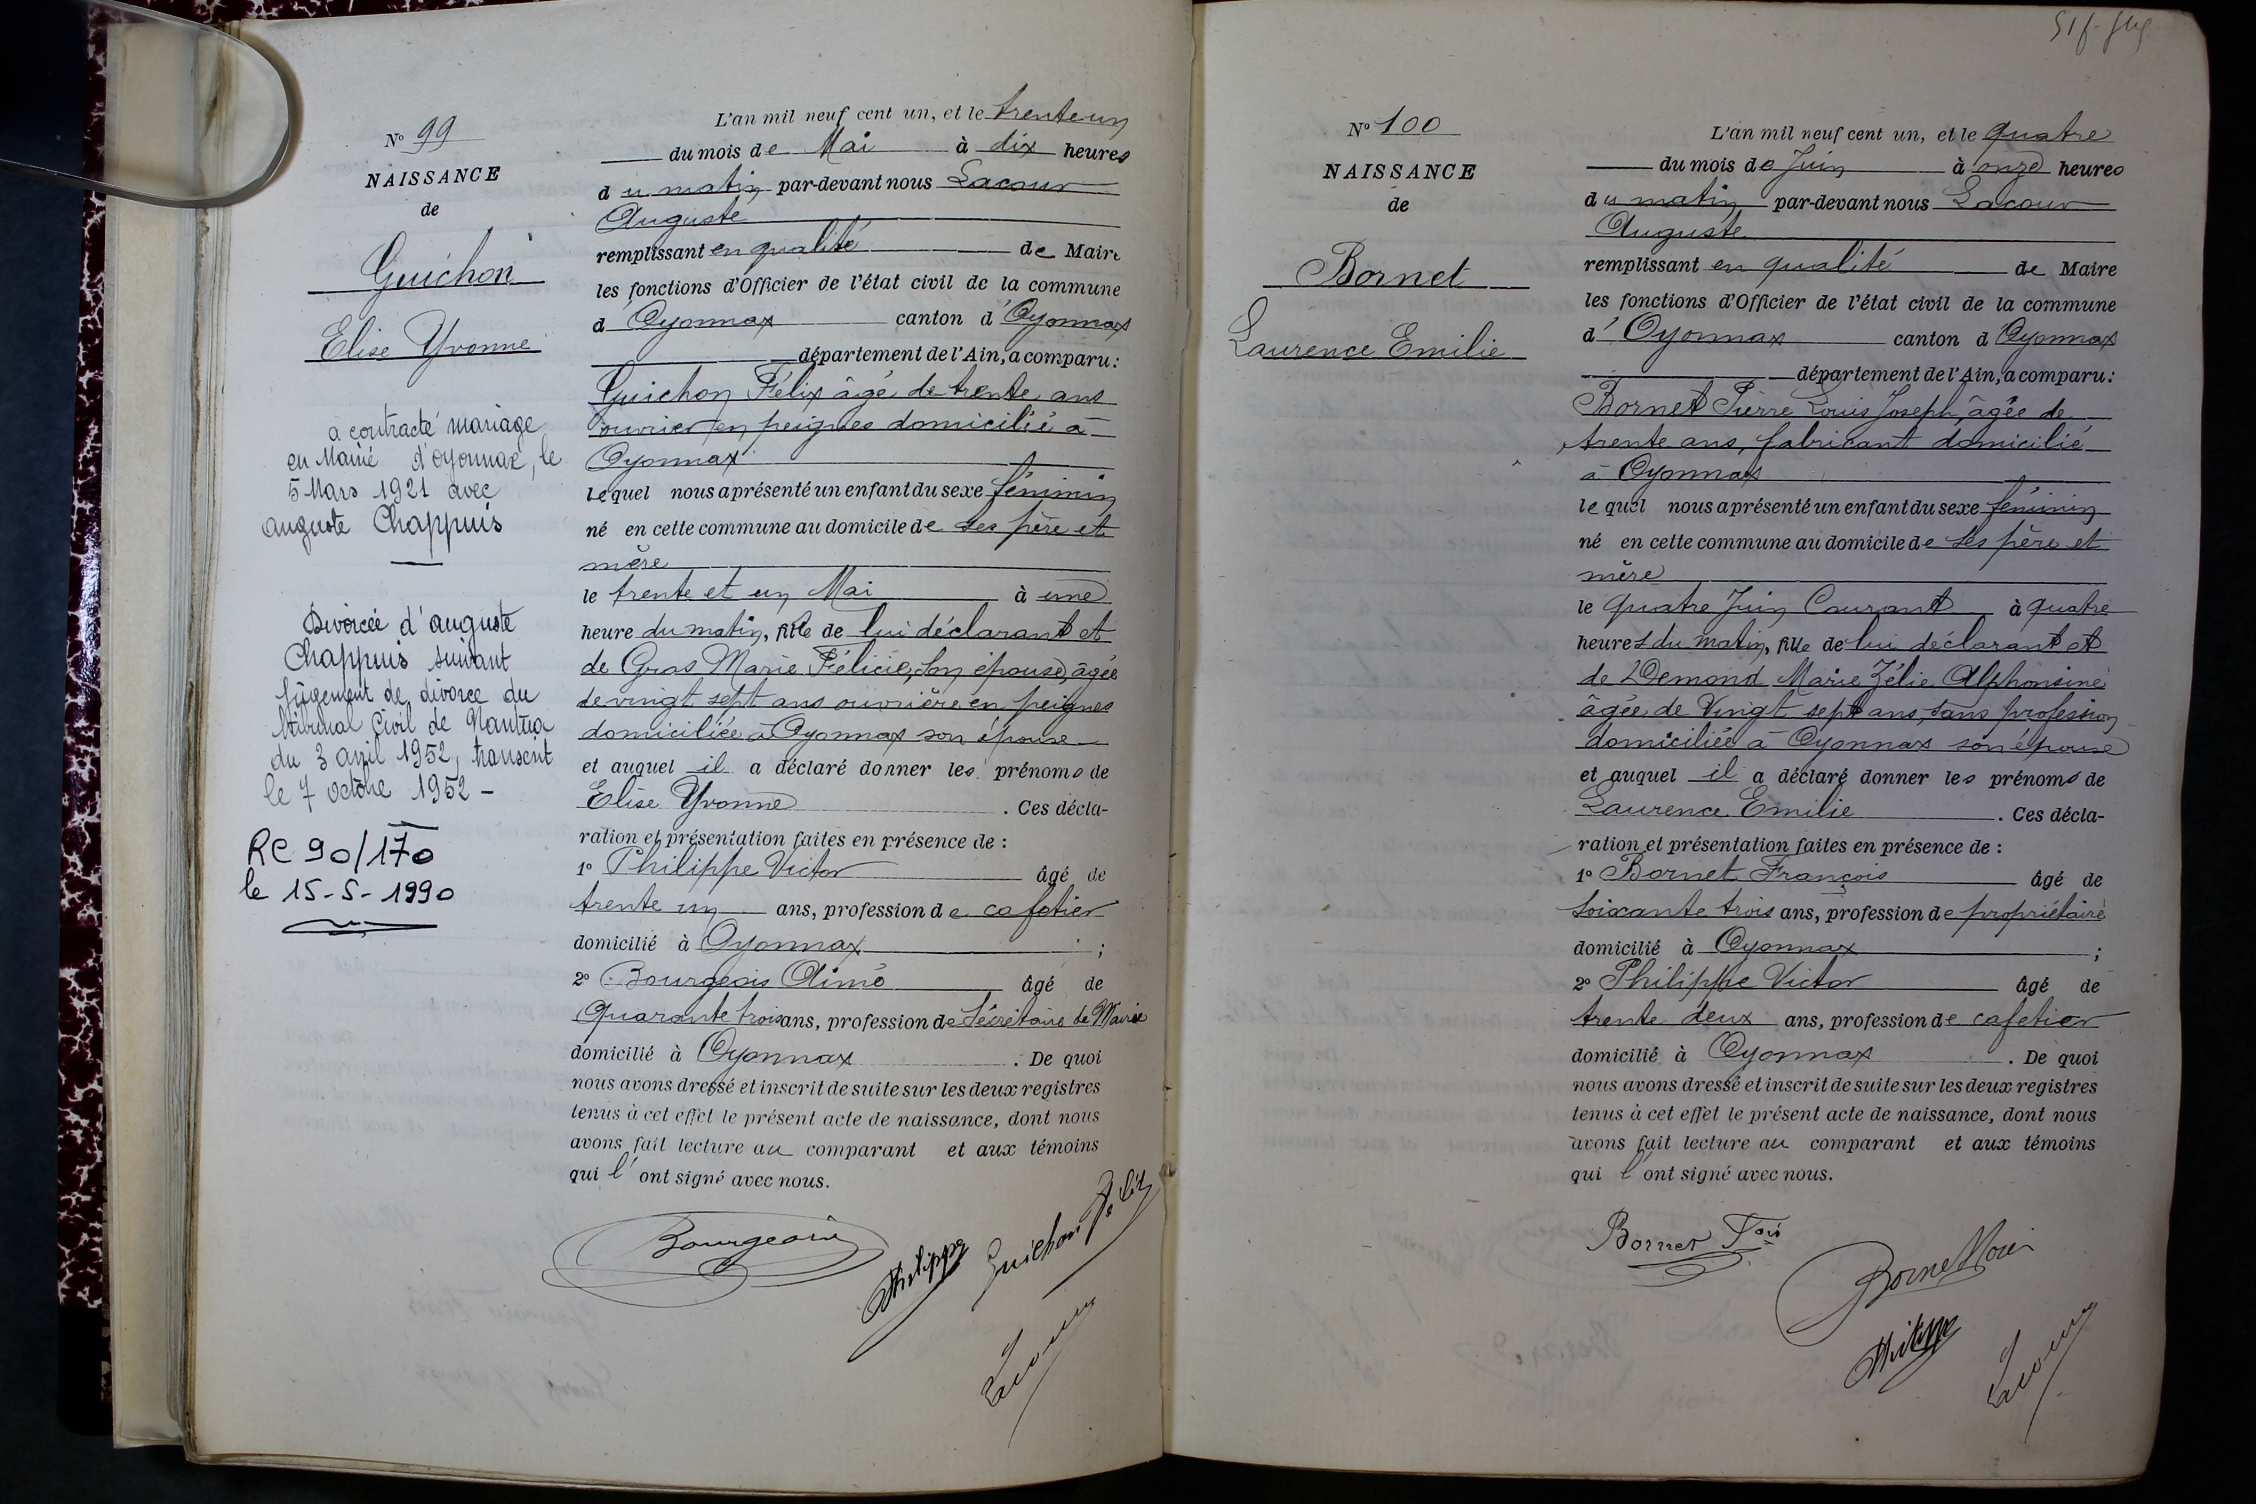 N° 99
NAISSANCE
de
Guichon
Elise Yvonne
a contracté mariage
en Mairie d'Oyonnax, le
5 Mars 1921 avec
Auguste Chappuis
Divorcée d'Auguste
Chappuis suivant
jugement de divorce du
tribunal Civil de Nantua
du 3 avril 1952, transcrit
le 7 octobre 1952 -
RC 90/170
le 15-5-1990
L'an mil neuf cent un, et le trente un
du mois de Mai à dix heures
du matin par-devant nous Lacour
Auguste
remplissant en qualité de Maire
les fonctions d'Officier de l'état civil de la commune
d Oyonnax canton d'Oyonnax
département de l'Ain, a comparu :
Guichon Félix âgé de trente ans
ouvrier en peignes domicilié à
Oyonnax
lequel nous a présenté un enfant du sexe féminin
né en cette commune au domicile de ses père et
mère
le trente et un Mai à une
heure du matin, fille de lui déclarant et
de Gras Marie Félicie, son épouse, âgée
de vingt sept ans ouvrière en peignes
domiciliée à Oyonnax son épouse
et auquel il a déclaré donner les prénoms de
Elise Yvonne . Ces décla-
ration et présentation faites en présence de :
1° Philippe Victor âgé de
trente un ans, profession de cafetier
domicilié à Oyonnax ;
2° Bourgeois Aimé âgé de
Quarante trois ans, profession de Secrétaire de Mairie
domicilié à Oyonnax . De quoi
nous avons dressé et inscrit de suite sur les deux registres
tenus à cet effet le présent acte de naissance, dont nous
avons fait lecture au comparant et aux témoins
qui l'ont signé avec nous.
Bourgeois
Philippe
Guichon Félix
Lacour
N° 100
NAISSANCE
de
Bornet
Laurence Emilie
L'an mil neuf cent un, et le quatre
du mois de Juin à onze heures
du matin par-devant nous Lacour
Auguste
remplissant en qualité de Maire
les fonctions d'Officier de l'état civil de la commune
d'Oyonnax canton d'Oyonnax
département de l'Ain, a comparu :
Bornet Pierre Louis Joseph, âgée de
trente ans, fabricant domicilié
à Oyonnax
lequel nous a présenté un enfant du sexe féminin
né en cette commune au domicile de ses père et
mère
le quatre Juin Courant à quatre
heures du matin, fille de lui déclarant et
de Demond Marie Zélie Alphonsine
âgée de Vingt sept ans, sans profession
domiciliée à Oyonnax son épouse
et auquel il a déclaré donner les prénoms de
Laurence Emilie . Ces décla-
ration et présentation faites en présence de :
1° Bornet François âgé de
soixante trois ans, profession de propriétaire
domicilié à Oyonnax ;
2° Philippe Victor âgé de
trente deux ans, profession de cafetier
domicilié à Oyonnax . De quoi
nous avons dressé et inscrit de suite sur les deux registres
tenus à cet effet le présent acte de naissance, dont nous
avons fait lecture au comparant et aux témoins
qui l'ont signé avec nous.
Bornet Fois
Bornet
Philippe
Lacour